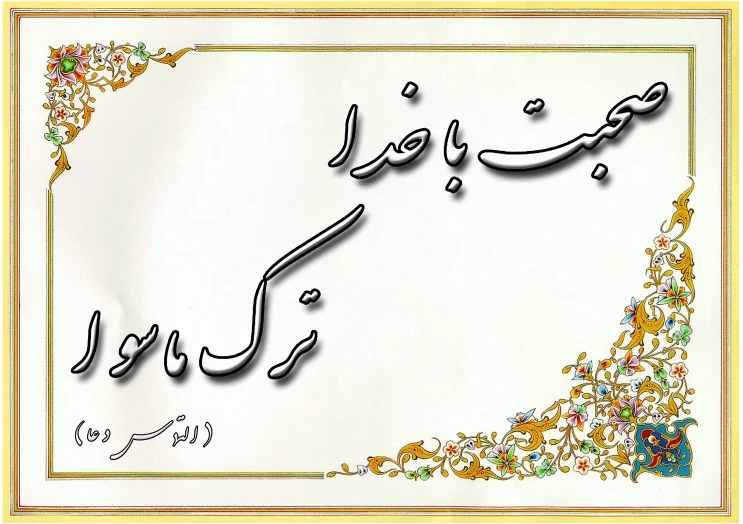 صحبت با خدا
ترک ماسوا
(التماس دعا)